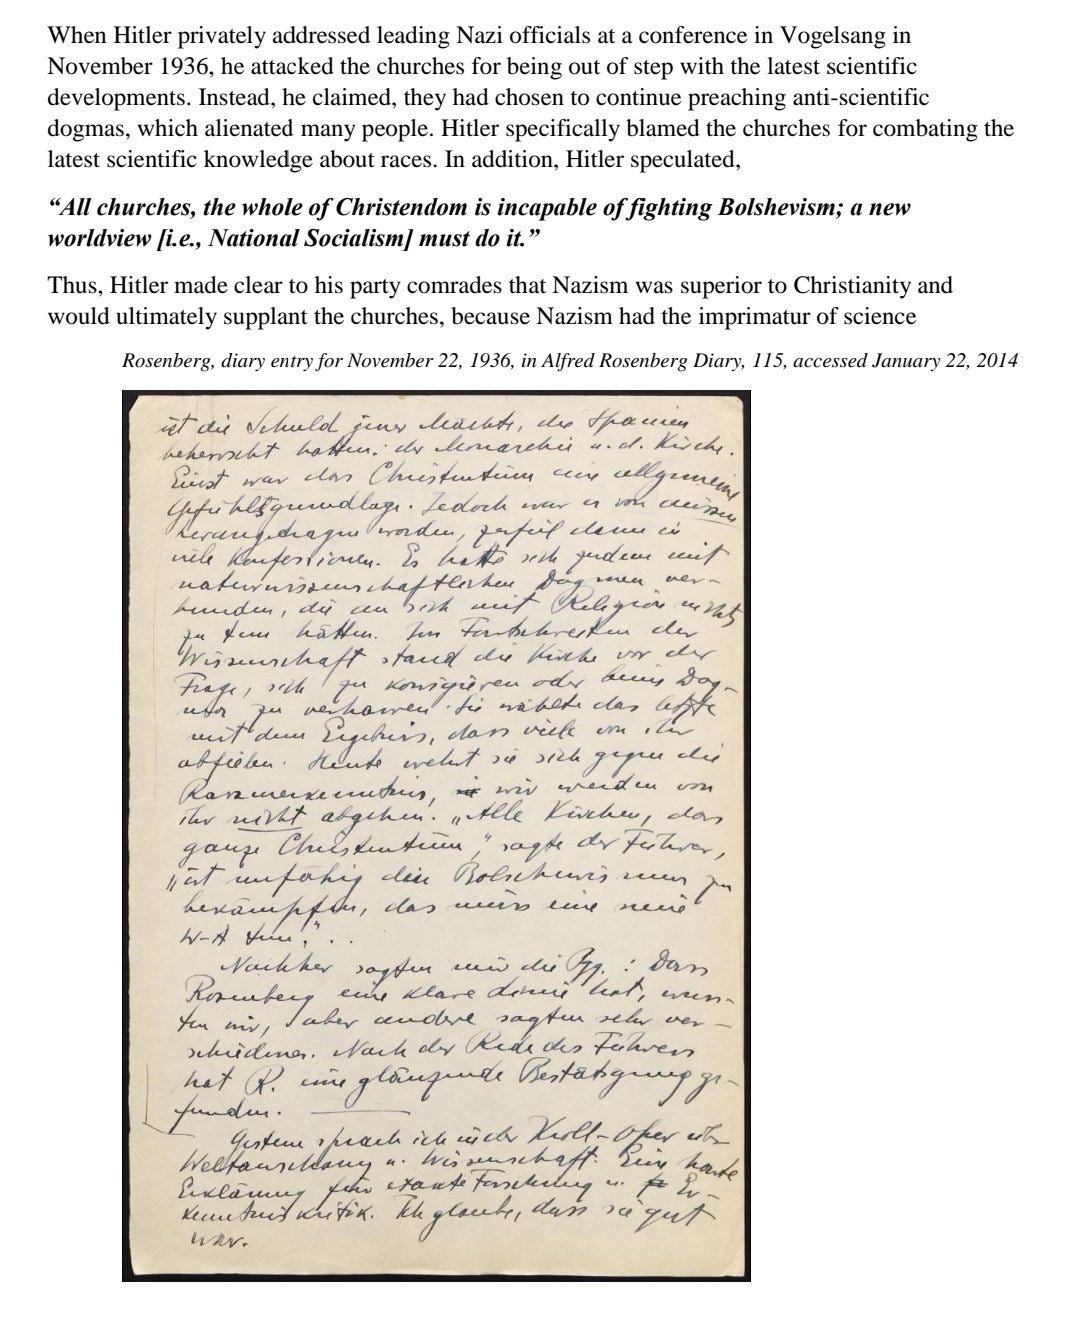 When Hitler privately addressed leading Nazi officials at a conference in Vogelsang in
November 1936, he attacked the churches for being out of step with the latest scientific
developments. Instead, he claimed, they had chosen to continue preaching anti-scientific
dogmas, which alienated many people. Hitler specifically blamed the churches for combating the
latest scientific knowledge about races. In addition, Hitler speculated,
“All churches, the whole of Christendom is incapable of fighting Bolshevism; a new
worldview [i.e., National Socialism] must do it.”
Thus, Hitler made clear to his party comrades that Nazism was superior to Christianity and
would ultimately supplant the churches, because Nazism had the imprimatur of science
Rosenberg, diary entry for November 22, 1936, in Alfred Rosenberg Diary, 115, accessed January 22, 2014
ist die Schuld jener Mächte, die Spanien
beherrscht hatten: der Monarchie u. d. Kirche.
Einst war das Christentum eine allgemeine
Gefühlsgrundlage. Jedoch war es von aussen
herangetragen worden, zerfiel dann in
viele Konfessionen. Es hatte sich zudem mit
naturwissenschaftlichen Dogmen ver-
bunden, die an sich mit Religion nichts
zu tun hätten. Im Fortschreiten der
Wissenschaft stand die Kirche vor der
Frage, sich zu korrigieren oder beim Dog-
ma zu verharren. Sie wählte das letzte
mit dem Ergebnis, dass viele von ihr
abfielen. Heute wehrt sie sich gegen die
Rassenerkenntnis, wir werden von
ihr nicht abgehen. „Alle Kirchen, das
ganze Christentum“, sagte der Führer,
„ist unfähig den Bolschewismus zu
bekämpfen, das muss eine neue
W-A tun.“..
Nachher sagten mir die Pg.: Dass
Rosenberg eine klare Linie hat, wuss-
ten wir, aber andere sagten sehr ver-
schiedenes. Nach der Rede des Führers
hat R. eine glänzende Bestätigung ge-
funden.
Gestern sprach ich in der Kroll-Oper über
Weltanschauung u. Wissenschaft. Eine
Erklärung für exakte Forschung u. Er-
kenntniskritik. Ich glaube, dass sie gut
war.